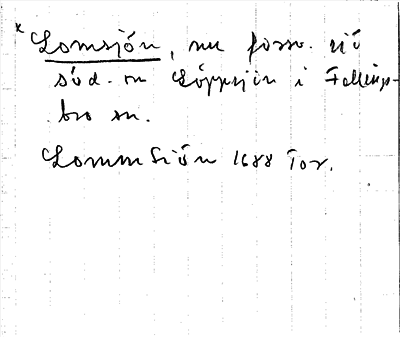 * Lomsjön, nu försv. sjö
söd. om Löppsjön i Fellings-
bro sn.
Lommsiön 1688 Tor.